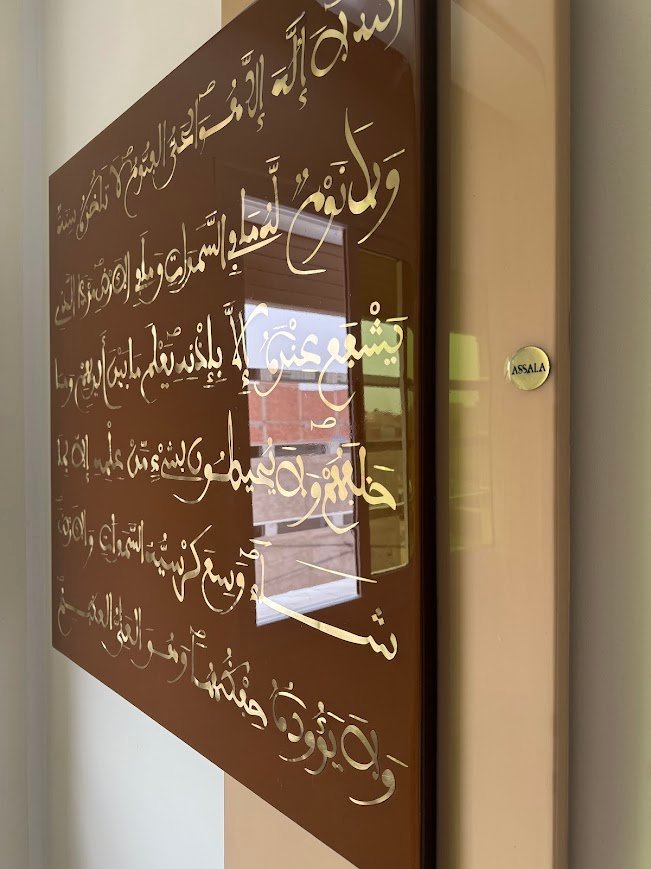 الله لا إله إلا هو الحي القيوم لا تأخذه سنة
ولا نوم له ما في السموات وما في الأرض من ذا الذي
يشفع عنده إلا بإذنه يعلم ما بين أيديهم وما
خلفهم ولا يحيطون بشيء من علمه إلا بما
شاء وسع كرسيه السموات والأرض
ولا يؤوده حفظهما وهو العلي العظيم
ASSALA